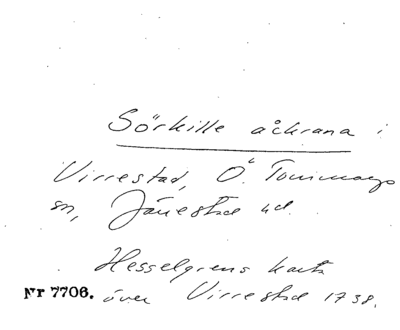 Sörkille åckrana i
Virrestad, Ö. Tommarps
sn, Järrestad hd.
Hesselgrens karta
Nr 7706. över Virrestad 1738.